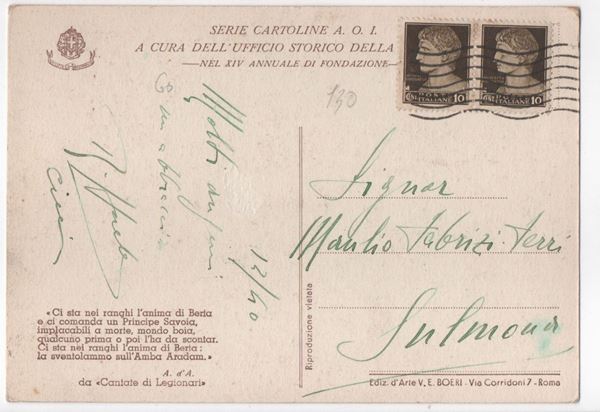 SERIE CARTOLINE A. O. I.
A CURA DELL'UFFICIO STORICO DELLA
NEL XIV ANNUALE DI FONDAZIONE
POSTE
ITALIANE 10
POSTE
ITALIANE 10
130
Molti auguri
12/40
Signor
Manlio Fabrizi Ferri
Sulmona
«Ci sta nei ranghi l'anima di Berta
e ci comanda un Principe Savoia,
implacabili a morte, mondo boia,
qualcuno prima o poi l'ha da scontar.
Ci sta nei ranghi l'anima di Berta:
la sventolammo sull'Amba Aradam.»
A. d'A.
da «Cantate di Legionari»
Riproduzione vietata
Ediz. d'Arte V. E. BOERI - Via Corridoni 7 - Roma